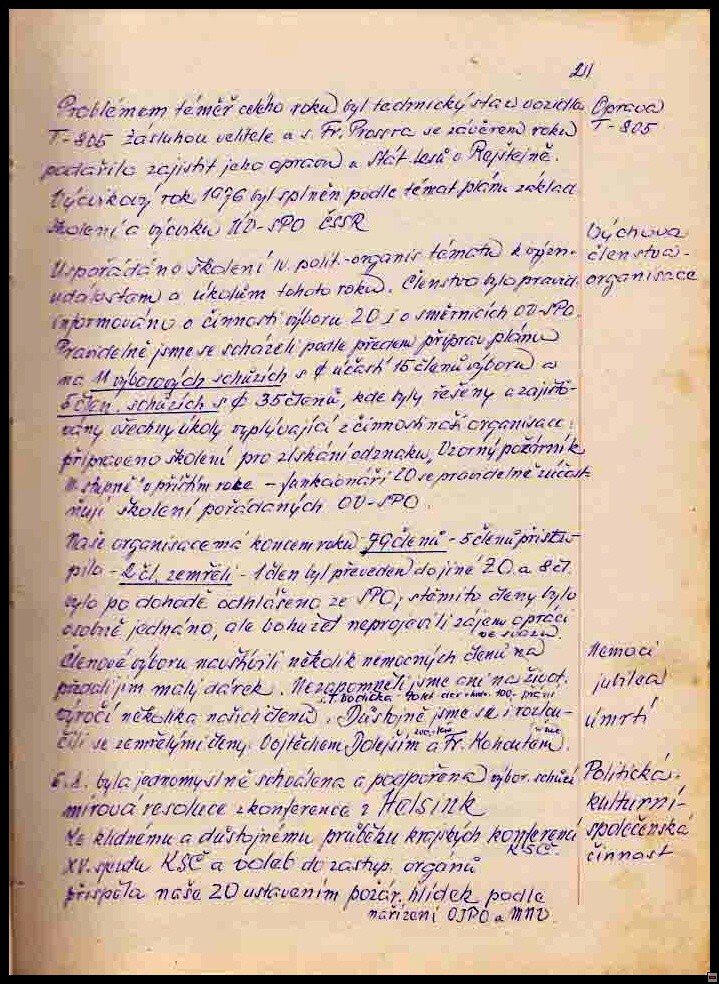 211
Problémem téměř celého roku byl technický stav vozidla
T-805 Zásluhou velitele a s. Fr. se závěrem roku
podařilo zajistit jeho opravu u Stát. lesů v Rejštejně.
Výcvikový rok 1976 byl splněn podle témat. plánu základ.
školení a výcviku ÚV-SPO ČSSR
Oprava
T-805
Uspořádáno školení IV. polit.-organis. tématu k
událostem a úkolům tohoto roku. Členstvo bylo pravid.
informováno o činnosti výboru ZO i o směrnicích OV-SPO.
Pravidelně jsme se scházeli podle předem připrav. plánu
na 11 výborových schůzích s ϕ účastí 15 členů výboru a
5 člen. schůzích s ϕ 35 členů, kde byly řešeny a zajišťo-
vány všechny úkoly vyplývající z činnosti naší organisace;
připraveno školení pro získání odznaku „Vzorný požárník
III. stupně" v příštím roce - funkcionáři ZO se pravidelně zúčast-
ňují školení pořádaných OV-SPO.
Výchova
členstva-
organisace
Naše organisace má koncem roku 79 členů - 5 členů přistou-
pilo - 2 čl. zemřeli - 1 člen byl převeden do jiné ZO a 8 čl.
bylo po dohodě odhlášeno ze SPO; s těmito členy bylo
osobně jednáno, ale bohužel neprojevili zájem o práci
ve svazu.
Členové výboru navštívili několik nemocných členů a
předali jim malý dárek. Nezapomněli jsme ani na život.
výročí několika našich členů. Důstojně jsme se i rozlou-
čili se zemřelými členy Vojtěchem Dolejším a Fr. Kohoutem.
Nemoci
jubilea
úmrtí
6.2. byla jednomyslně schválena a podpořena výbor. schůzí
mírová resoluce z konference z Helsink
Ke klidnému a důstojnému průběhu krajských konferencí
KSČ.
XV. sjezdu KSČ a voleb do zastup. orgánů
přispěla naše ZO ustavením požár. hlídek podle
nařízení OIPO a MNV.
Politická-
kulturní-
společenská
činnost